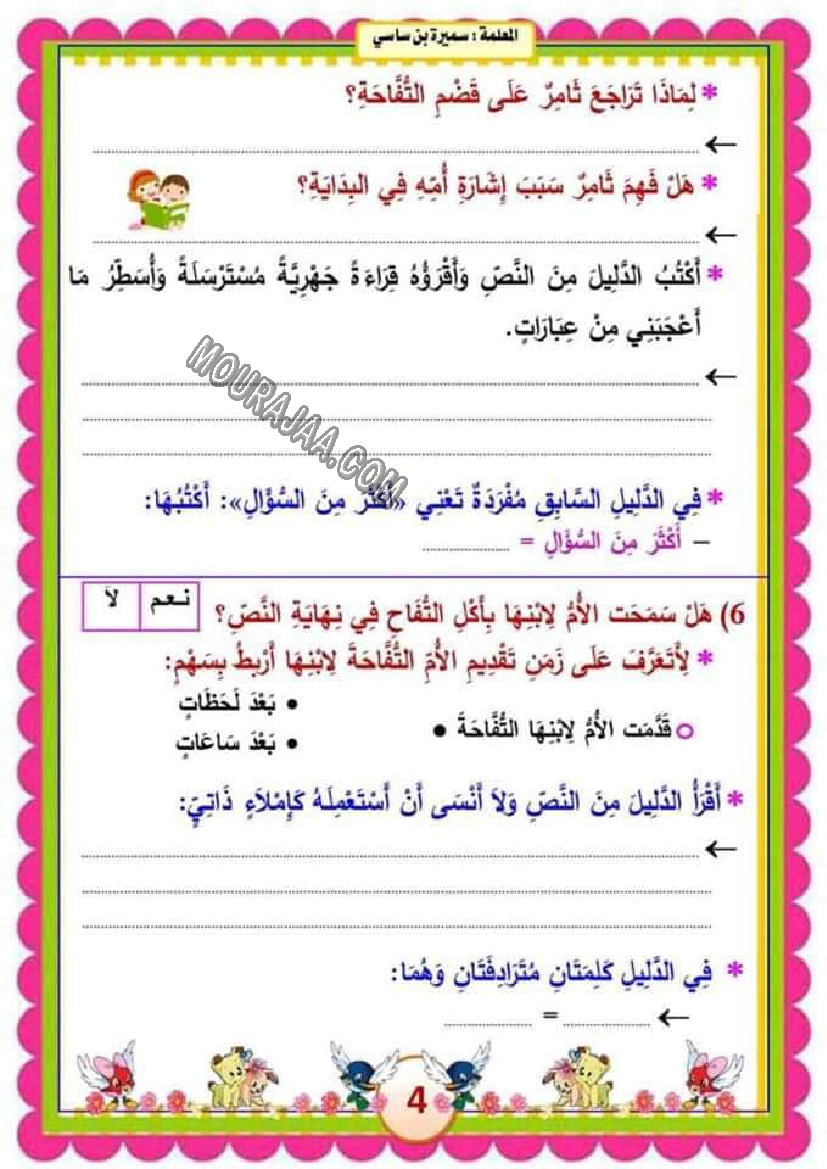 المعلمة : سميرة بن ساسي
* لِمَاذَا تَرَاجَعَ ثَامِرٌ عَلَى قَضْمِ التُّفَّاحَةِ؟
←
* هَلْ فَهِمَ ثَامِرٌ سَبَبَ إِشَارَةِ أُمِّهِ فِي البِدَايَةِ؟
←
* أَكْتُبُ الدَّلِيلَ مِنَ النَّصِّ وَأَقْرَؤُهُ قِرَاءَةً جَهْرِيَّةً مُسْتَرْسَلَةً وَأُسَطِّرُ مَا
أَعْجَبَنِي مِنْ عِبَارَاتٍ.
MOURAJAA.COM
←
* فِي الدَّلِيلِ السَّابِقِ مُفْرَدَةٌ تَعْنِي «أَكْثَرَ مِنَ السُّؤَالِ»: أَكْتُبُهَا:
– أَكْثَرَ مِنَ السُّؤَالِ = ..............
6) هَلْ سَمَحَت الأُمُّ لِابْنِهَا بِأَكْلِ التُّفَاحِ فِي نِهَايَةِ النَّصِّ؟ نـعـم لاَ
* لِأَتَعَرَّفَ عَلَى زَمَنِ تَقْدِيمِ الأُمِّ التُّفَّاحَةَ لِابْنِهَا أَرْبِطُ بِسَهْمٍ:
• بَعْدَ لَحَظَاتٍ
○ قَدَّمَت الأُمُّ لِابْنِهَا التُّفَّاحَةَ •
• بَعْدَ سَاعَاتٍ
* أَقْرَأُ الدَّلِيلَ مِنَ النَّصِّ وَلاَ أَنْسَى أَنْ أَسْتَعْمِلَهُ كَإِمْلاَءٍ ذَاتِيٍّ:
←
* فِي الدَّلِيلِ كَلِمَتَانِ مُتَرَادِفَتَانِ وَهُمَا:
← .............. = ..............
4